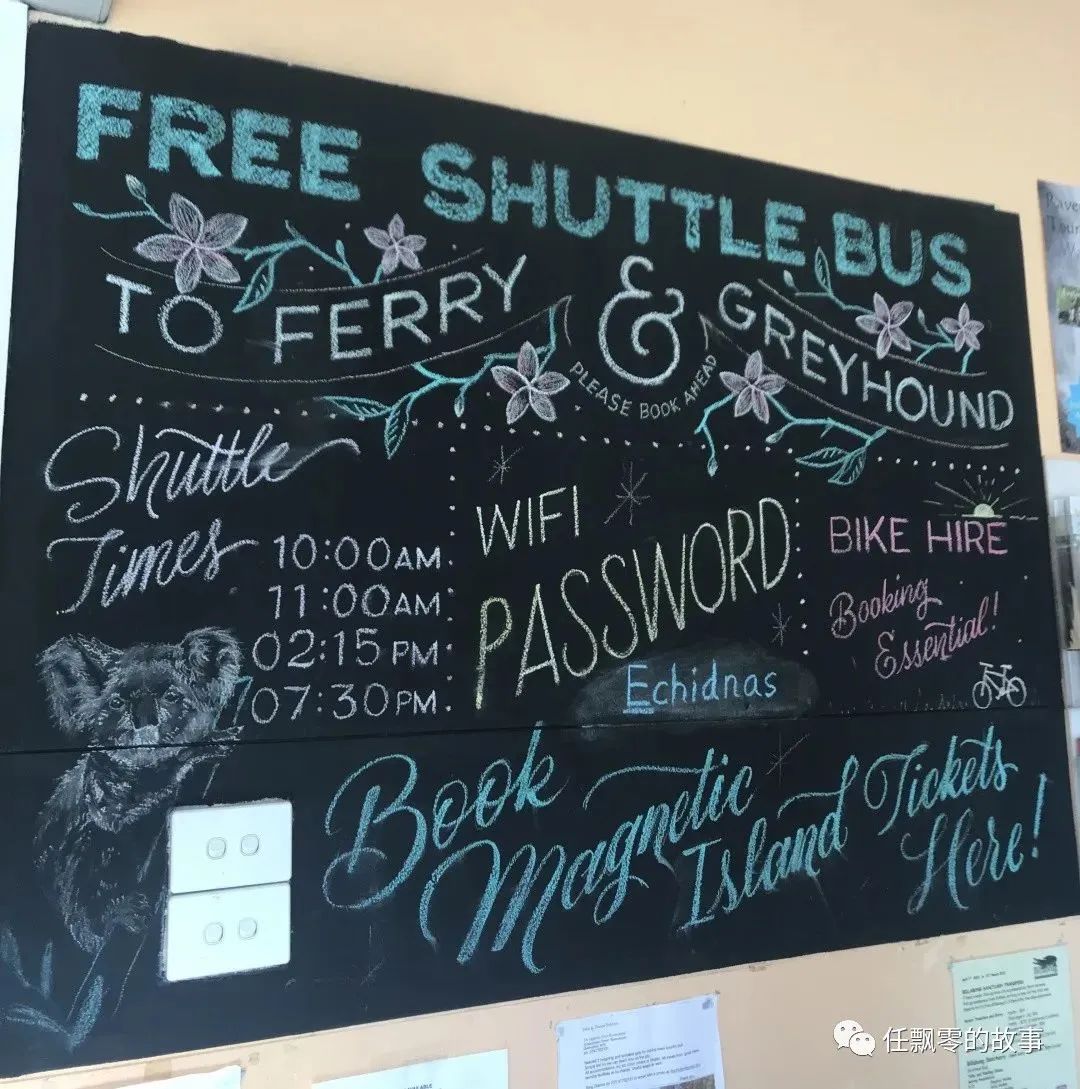 FREE SHUTTLE BUS
TO FERRY & GREYHOUND
PLEASE BOOK AHEAD
Shuttle
Times
10:00AM
11:00AM
02:15PM
07:30PM
WIFI
PASSWORD
Echidnas
BIKE HIRE
Booking
Essential!
Book
Magnetic
Island Tickets
Here!
任飘零的故事